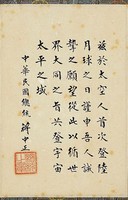 茲於太空人首次登陸
月球之日謹申吾人誠
摯之願望從此以世
界大同之共登宇宙
太平之域
中華民國總統 蔣中正